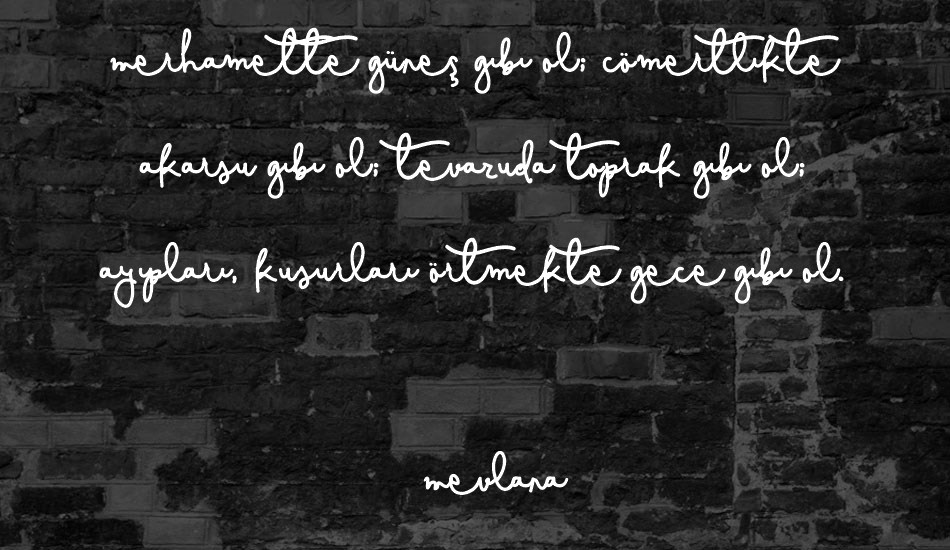 merhamette güneş gıbı ol; cömertlıkte
akarsu gıbı ol; tevazuda toprak gıbı ol;
ayıpları, kusurları örtmekte gece gıbı ol.
mevlana